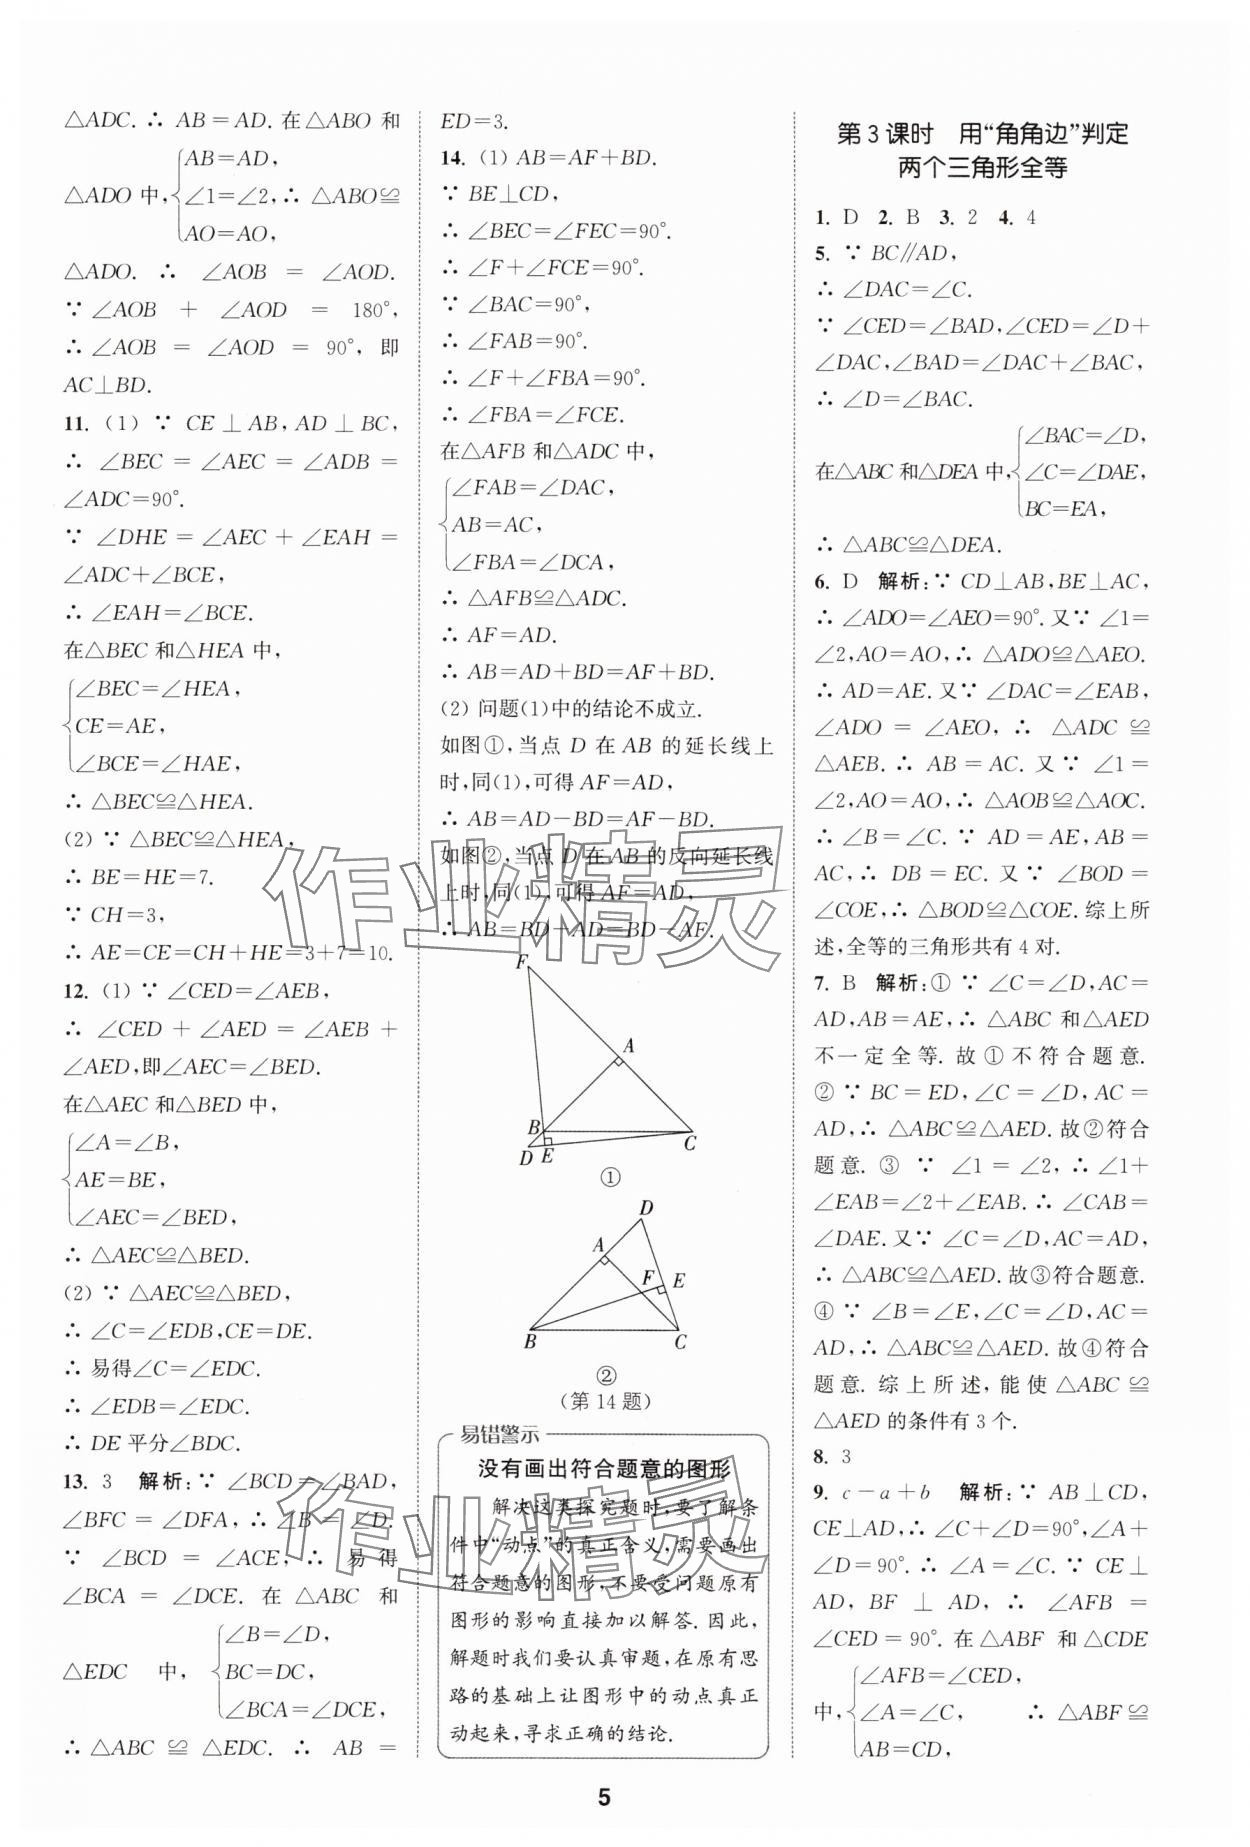 △ADC. ∴ AB=AD. 在△ABO 和
△ADO 中,
AB=AD,
∠1=∠2,
AO=AO,
∴ △ABO≌
△ADO. ∴ ∠AOB = ∠AOD.
∵ ∠AOB + ∠AOD = 180°,
∴ ∠AOB = ∠AOD = 90°, 即
AC⊥BD.
11. (1) ∵ CE⊥AB, AD⊥BC,
∴ ∠BEC = ∠AEC = ∠ADB =
∠ADC=90°.
∵ ∠DHE = ∠AEC + ∠EAH =
∠ADC+∠BCE,
∴ ∠EAH=∠BCE.
在△BEC 和△HEA 中,
∠BEC=∠HEA,
CE=AE,
∠BCE=∠HAE,
∴ △BEC≌△HEA.
(2) ∵ △BEC≌△HEA,
∴ BE=HE=7.
∵ CH=3,
∴ AE=CE=CH+HE=3+7=10.
12. (1) ∵ ∠CED=∠AEB,
∴ ∠CED + ∠AED = ∠AEB +
∠AED, 即∠AEC=∠BED.
在△AEC 和△BED 中,
∠A=∠B,
AE=BE,
∠AEC=∠BED,
∴ △AEC≌△BED.
(2) ∵ △AEC≌△BED,
∴ ∠C=∠EDB, CE=DE.
∴ 易得∠C=∠EDC.
∴ ∠EDB=∠EDC.
∴ DE 平分∠BDC.
13. 3 解析: ∵ ∠BCD=∠BAD,
∠BFC = ∠DFA, ∴ ∠B = ∠D.
∵ ∠BCD = ∠ACE, ∴ 易得
∠BCA = ∠DCE. 在 △ABC 和
△EDC 中,
∠B=∠D,
BC=DC,
∠BCA=∠DCE,
∴ △ABC ≌ △EDC. ∴ AB =
ED=3.
14. (1) AB=AF+BD.
∵ BE⊥CD,
∴ ∠BEC=∠FEC=90°.
∴ ∠F+∠FCE=90°.
∵ ∠BAC=90°,
∴ ∠FAB=90°.
∴ ∠F+∠FBA=90°.
∴ ∠FBA=∠FCE.
在△AFB 和△ADC 中,
∠FAB=∠DAC,
AB=AC,
∠FBA=∠DCA,
∴ △AFB≌△ADC.
∴ AF=AD.
∴ AB=AD+BD=AF+BD.
(2) 问题(1)中的结论不成立.
如图①, 当点 D 在 AB 的延长线上
时, 同(1), 可得 AF=AD,
∴ AB=AD-BD=AF-BD.
如图②, 当点 D 在 AB 的反向延长线
上时, 同(1), 可得 AF=AD,
∴ AB=BD-AD=BD-AF.
F
A
B
C
D E
①
D
A
F E
B
C
②
(第 14 题)
易错警示
没有画出符合题意的图形
解决这类探究题时, 要了解条
件中“动点”的真正含义, 需要画出
符合题意的图形, 不要受问题原有
图形的影响直接加以解答. 因此,
解题时我们要认真审题, 在原有思
路的基础上让图形中的动点真正
动起来, 寻求正确的结论.
第 3 课时 用“角角边”判定
两个三角形全等
1. D 2. B 3. 2 4. 4
5. ∵ BC∥AD,
∴ ∠DAC=∠C.
∵ ∠CED=∠BAD, ∠CED=∠D+
∠DAC, ∠BAD=∠DAC+∠BAC,
∴ ∠D=∠BAC.
在△ABC 和△DEA 中,
∠BAC=∠D,
∠C=∠DAE,
BC=EA,
∴ △ABC≌△DEA.
6. D 解析: ∵ CD⊥AB, BE⊥AC,
∴ ∠ADO=∠AEO=90°. 又∵ ∠1=
∠2, AO=AO, ∴ △ADO≌△AEO.
∴ AD=AE. 又∵ ∠DAC=∠EAB,
∠ADO = ∠AEO, ∴ △ADC ≌
△AEB. ∴ AB = AC. 又∵ ∠1 =
∠2, AO=AO, ∴ △AOB≌△AOC.
∴ ∠B = ∠C. ∵ AD = AE, AB =
AC, ∴ DB = EC. 又 ∵ ∠BOD =
∠COE, ∴ △BOD≌△COE. 综上所
述, 全等的三角形共有 4 对.
7. B 解析: ① ∵ ∠C=∠D, AC=
AD, AB=AE, ∴ △ABC 和△AED
不一定全等. 故①不符合题意.
② ∵ BC = ED, ∠C = ∠D, AC =
AD, ∴ △ABC≌△AED. 故②符合
题意. ③ ∵ ∠1 = ∠2, ∴ ∠1+
∠EAB=∠2+∠EAB. ∴ ∠CAB=
∠DAE. 又∵ ∠C=∠D, AC=AD,
∴ △ABC≌△AED. 故③符合题意.
④ ∵ ∠B=∠E, ∠C=∠D, AC=
AD, ∴ △ABC≌△AED. 故④符合
题意. 综上所述, 能使 △ABC ≌
△AED 的条件有 3 个.
8. 3
9. c-a+b 解析: ∵ AB⊥CD,
CE⊥AD, ∴ ∠C+∠D=90°, ∠A+
∠D=90°. ∴ ∠A=∠C. ∵ CE⊥
AD, BF ⊥ AD, ∴ ∠AFB =
∠CED = 90°. 在△ABF 和△CDE
中,
∠AFB=∠CED,
∠A=∠C,
AB=CD,
∴ △ABF≌
作业精灵
作业精灵
5